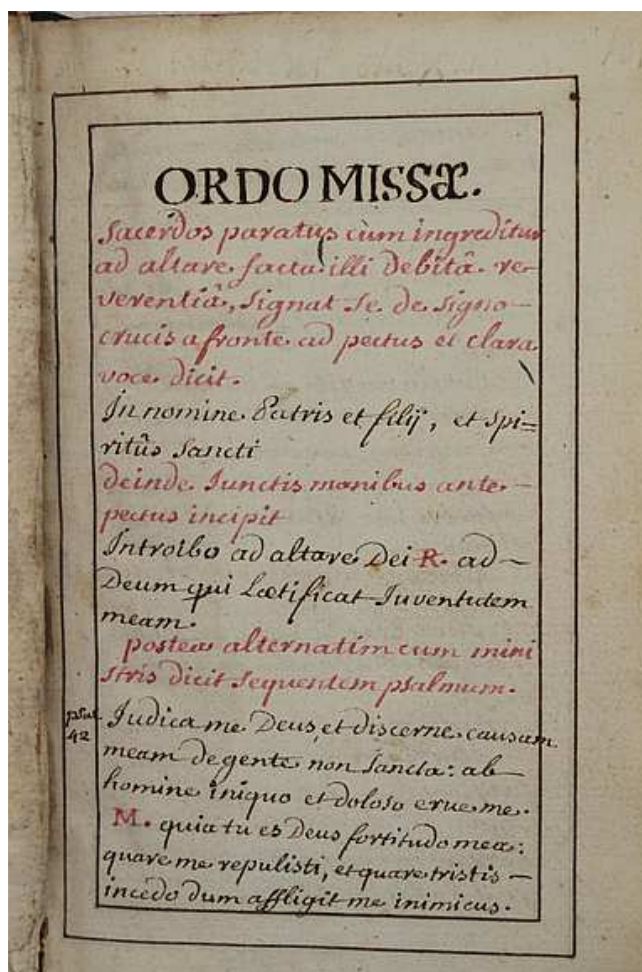 ORDO MISSÆ.
Sacerdos paratus cùm ingreditur
ad altare facta illi debitâ re-
verentiâ, signat se de signo-
crucis a fronte ad pectus et clara
voce dicit.
In nomine Patris et filij, et Spi=
ritûs Sancti
deinde Iunctis manibus ante-
pectus incipit
Introibo ad altare Dei R. ad-
Deum qui Lætificat Iuventutem
meam.
postea alternatim cum mini
stris dicit sequentem psalmum.
psal. 42
Iudica me Deus, et discerne causam
meam de gente non Sancta: ab-
homine iniquo et doloso erue me.
M. quia tu es Deus fortitudo mea:
quare me repulisti, et quare tristis-
incedo dum affligit me inimicus.